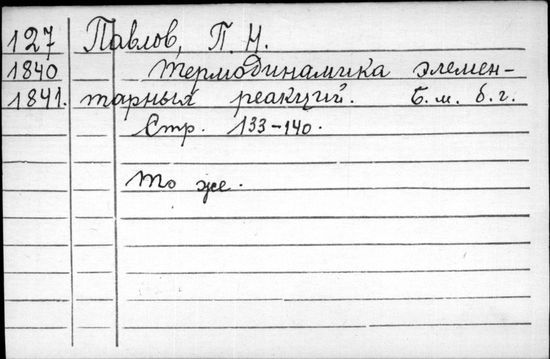 127 Павлов, П. Н.
1840 Термодинамика элемен-
1841. тарных реакций. Б. м. б. г.
Стр. 133-140.
То же.